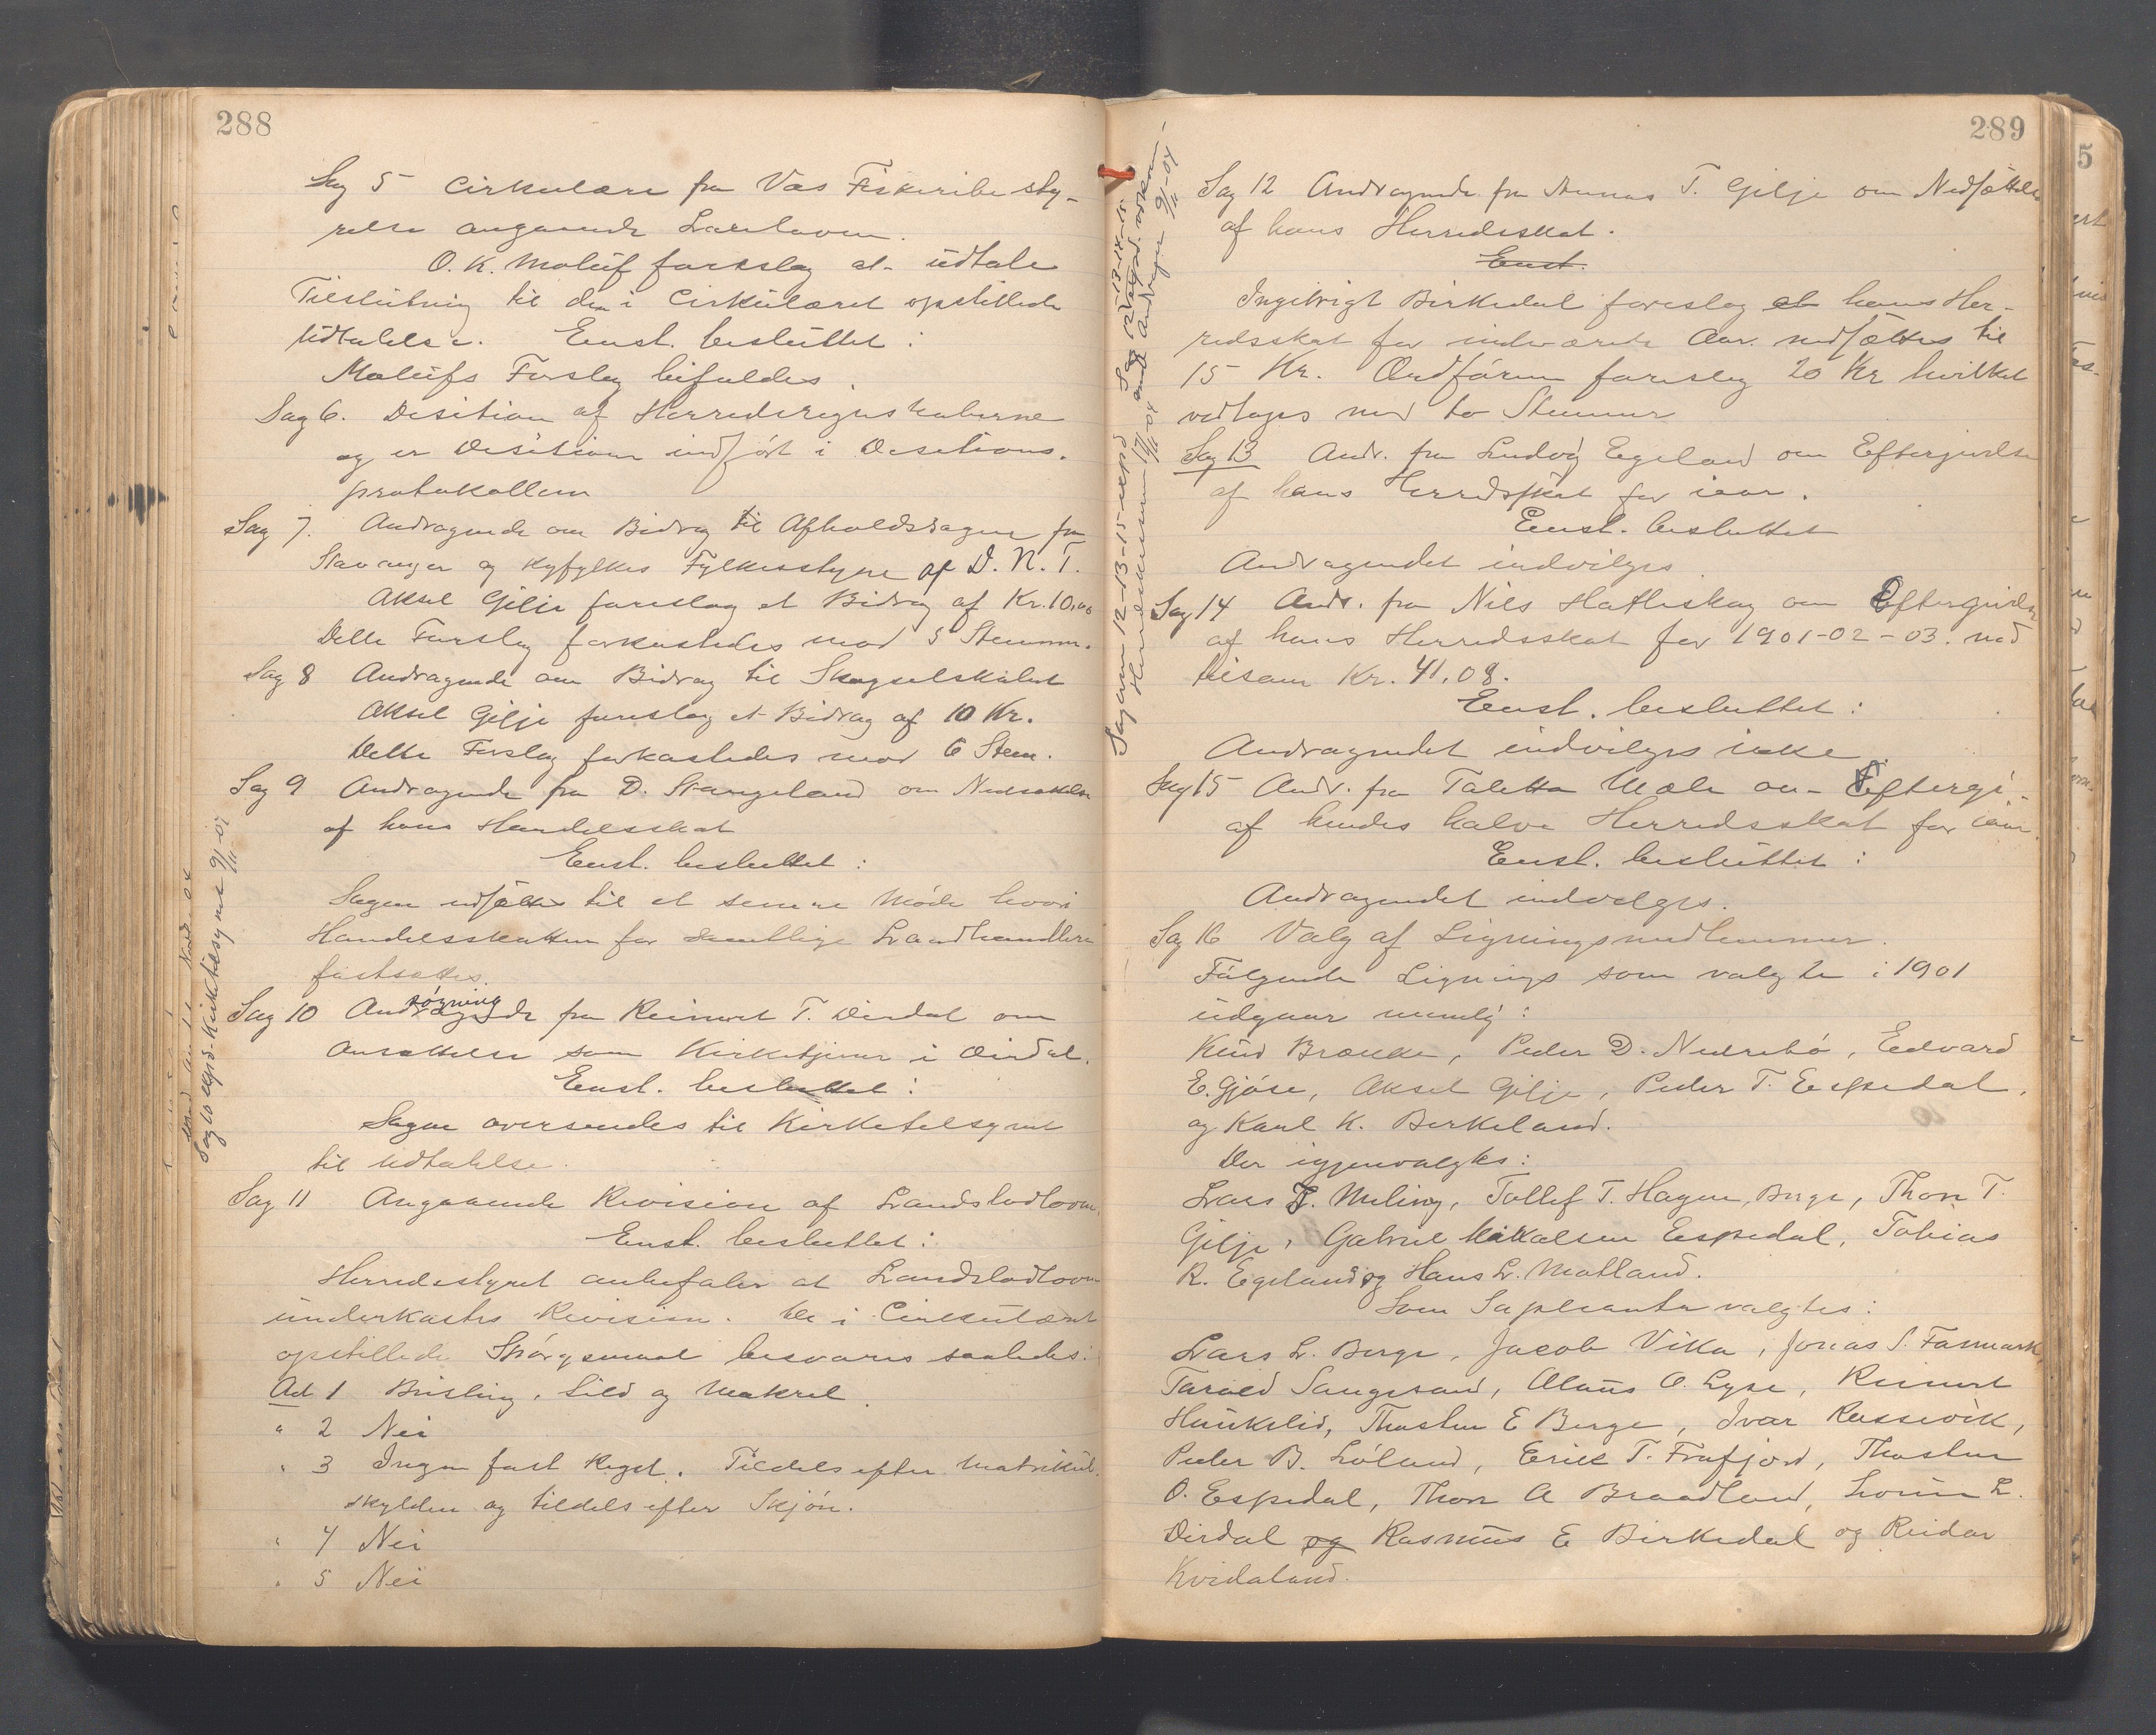 288
Sag 5 Cirkulære fra Vas Fiskeribesty-
relse angaaende Lærloven.
O. K. Maluf forslag at udtale
Tilslutning til den i Cirkulæret opstillede
Udtalelse. Enst. besluttet:
Malufs Forslag bifaldes.
Sag 6. Desition af Herredsregnskaberne
og er Desitionen indført i Desitions-
protokollen
Sag 7. Andragende om Bidrag til Afholdssagen fra
Stavanger og Ryfylkes Fylkesstyre af D. N. T.
Aksel Gilje foreslog et Bidrag af Kr. 10,00
Dette Forslag forkastedes mod 5 Stemmer.
Sag 8 Andragende om Bidrag til Skogselskabet
Aksel Gilje foreslog et Bidrag af 10 Kr.
Dette Forslag forkastedes mod 6 Stem.
Sag 9 Andragende fra D. Stangeland om Nedsættelse
af hans Handelsskat
Enst. besluttet:
Sagen udsættes til et senere Møde hvori
Handelsskatten for samtlige Landhandlere
fastsættes.
Sag 10 Andragende søgning fra Reinert T. Dirdal om
Ansættelse som Kirketjener i Dirdal.
Enst. besluttet:
Sagen oversendes til Kirketilsynet
til Udtalelse.
Sag 11 Angaaende Revision af Landslodloven.
Enst. besluttet:
Herredsstyret anbefaler at Landslodloven
underkastes Revision. De i Cirkulæret
opstillede Spørgsmaal besvares saaledes:
Ad 1 Brisling, Sild og Makrel.
" 2 Nei
" 3 Ingen fast Regel. Tildels efter Matrikul-
skylden og tildels efter Skjøn.
" 4 Nei
" 5 Nei
Sag 10 exp. Kirketilsynet 9/11-04
289
Sag 12 Andragende fra T. Gilje om Nedsættelse
af hans Herredsskat.
Enst.
Ingebrigt Birkedal foreslog at hans Her-
redsskat for indeværende Aar nedsættes til
15 Kr. Ordføreren foreslog 20 Kr hvilket
vedtoges med to Stemmer
Sag 13 Andr. fra Ludvig Egeland om Eftergivelse
af hans Herredsskat for iaar.
Enst. besluttet
Andragendet indvilges.
Sag 14 Andr. fra Nils Hatleskog om Eftergivelse
af hans Herredsskat for 1901-02-03. med
tilsam Kr. 41,08.
Enst. besluttet:
Andragendet indvilges ikke.
Sag 15 Andr. fra Taletta Mæle om Eftergi-
af hendes halve Herredsskat for iaar.
Enst. besluttet:
Andragendet indvilges.
Sag 16 Valg af Ligningsmedlemmer.
Følgende Lignings som valgte i 1901
udgaar nemlig:
Knud Brække, Peder D. Nedrebø, Eedvard
E. Gjøse, Aksel Gilje, Peder T. Espedal,
og Karl K. Birkeland.
Der igjenvalgtes:
Lars T. Meling, Tollef T. Hagen, Berge, Thore T.
Gilje, Gabriel Mikkalsen Espedal, Tobias
R. Egeland og Hans L. Matland.
Som Supleanter valgtes:
Lars L. Berge, Jacob Vika, Jonas S. Fasmark,
Tarald Sangesand, Olaus O. Lyse, Reinert
Haukelid, Thosten E Berge, Ivar Røssevik,
Peder B. Løland, Erik T. Frafjord, Thosten
O. Espedal, Thore A Braadland, L.
Dirdal og Rasmus E Birkedal og Reidar
Kvidaland.